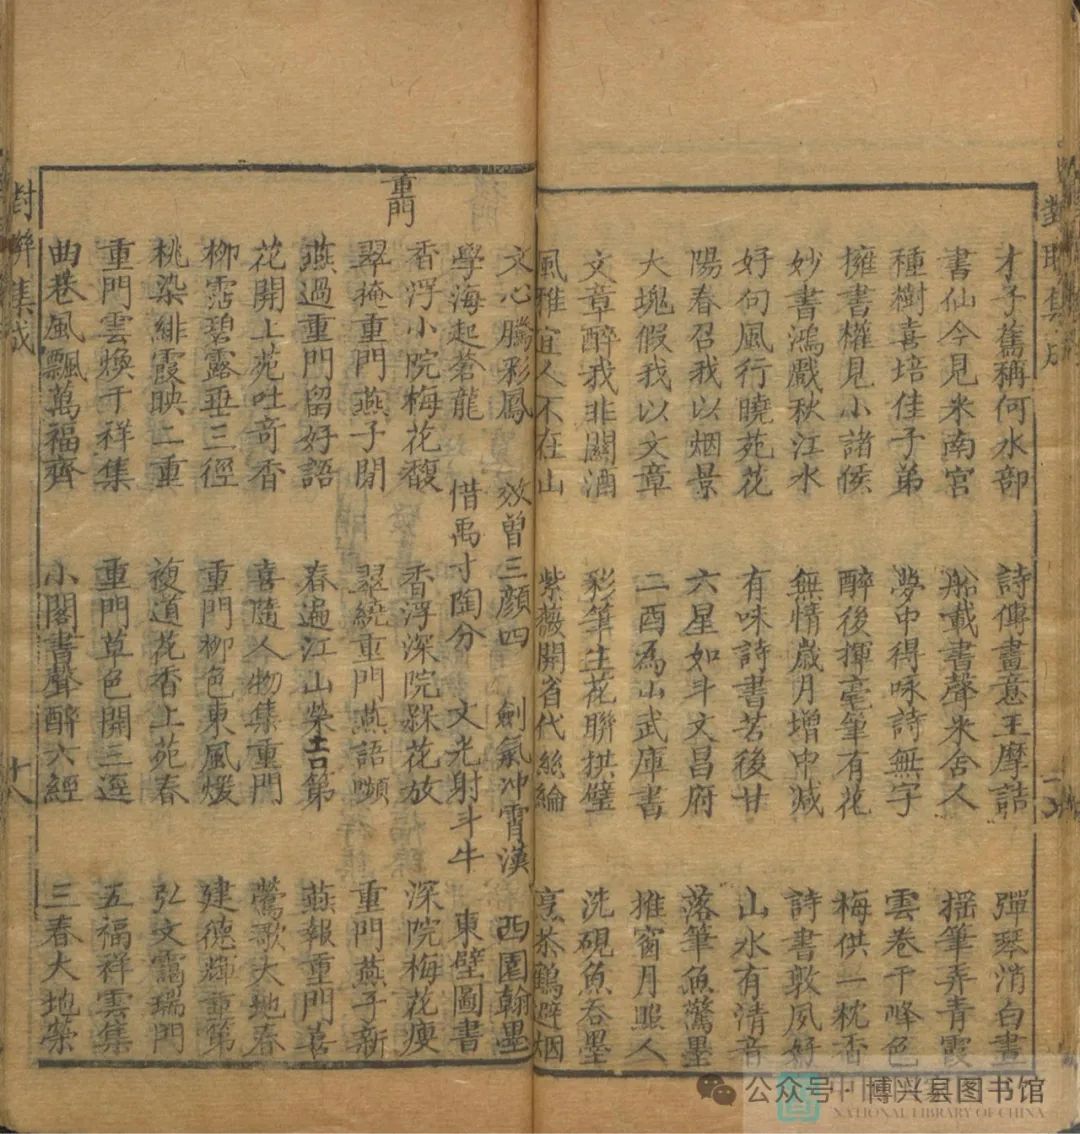 對聯集成
才子舊稱何水部 詩傳畫意王摩詰 彈琴消白晝
書仙今見米南宮 船載書聲米舍人 揺筆弄青霞
種樹喜培佳子弟 夢中得咏詩無字 雲卷千峰色
擁書權見小諸侯 醉後揮毫筆有花 梅供一枕香
妙書鴻戲秋江水 無情歲月增中减 詩書敦夙好
好句風行曉苑花 有味詩書苦後甘 山水有清音
陽春召我以烟景 六星如斗文昌府 落筆魚驚墨
大塊假我以文章 二酉為山武庫書 推窗月照人
文章醉我非關酒 彩筆生花聯拱璧 洗硯魚吞墨
風雅宜人不在山 紫薇開省代絲綸 烹茶鶴避烟
文心騰彩鳳 效曾三顔四 劍氣冲霄漢 西園翰墨
學海起蒼龍 惜禹寸陶分 文光射斗牛 東壁圖書
重門
香浮小院梅花馥 香浮深院槑花放 深院梅花瘦
翠掩重門燕子閒 翠繞重門燕語嚬 重門燕子新
燕過重門留好語 春遍江山榮吉第 燕報重門喜
花開上苑吐奇香 喜隨人物集重門 鶯歌大地春
柳霑碧露垂三徑 重門柳色東風煖 建德輝重第
桃染緋霞映二重 複道花香上苑春 弘文靄瑞門
重門雲煥千祥集 重門草色開三逕 五福祥雲集
曲巷風飄萬福齊 小閣書聲醉六經 三春大地榮
對聯集成 十八
公众号 · 博兴县图书馆
NATIONAL LIBRARY OF CHINA